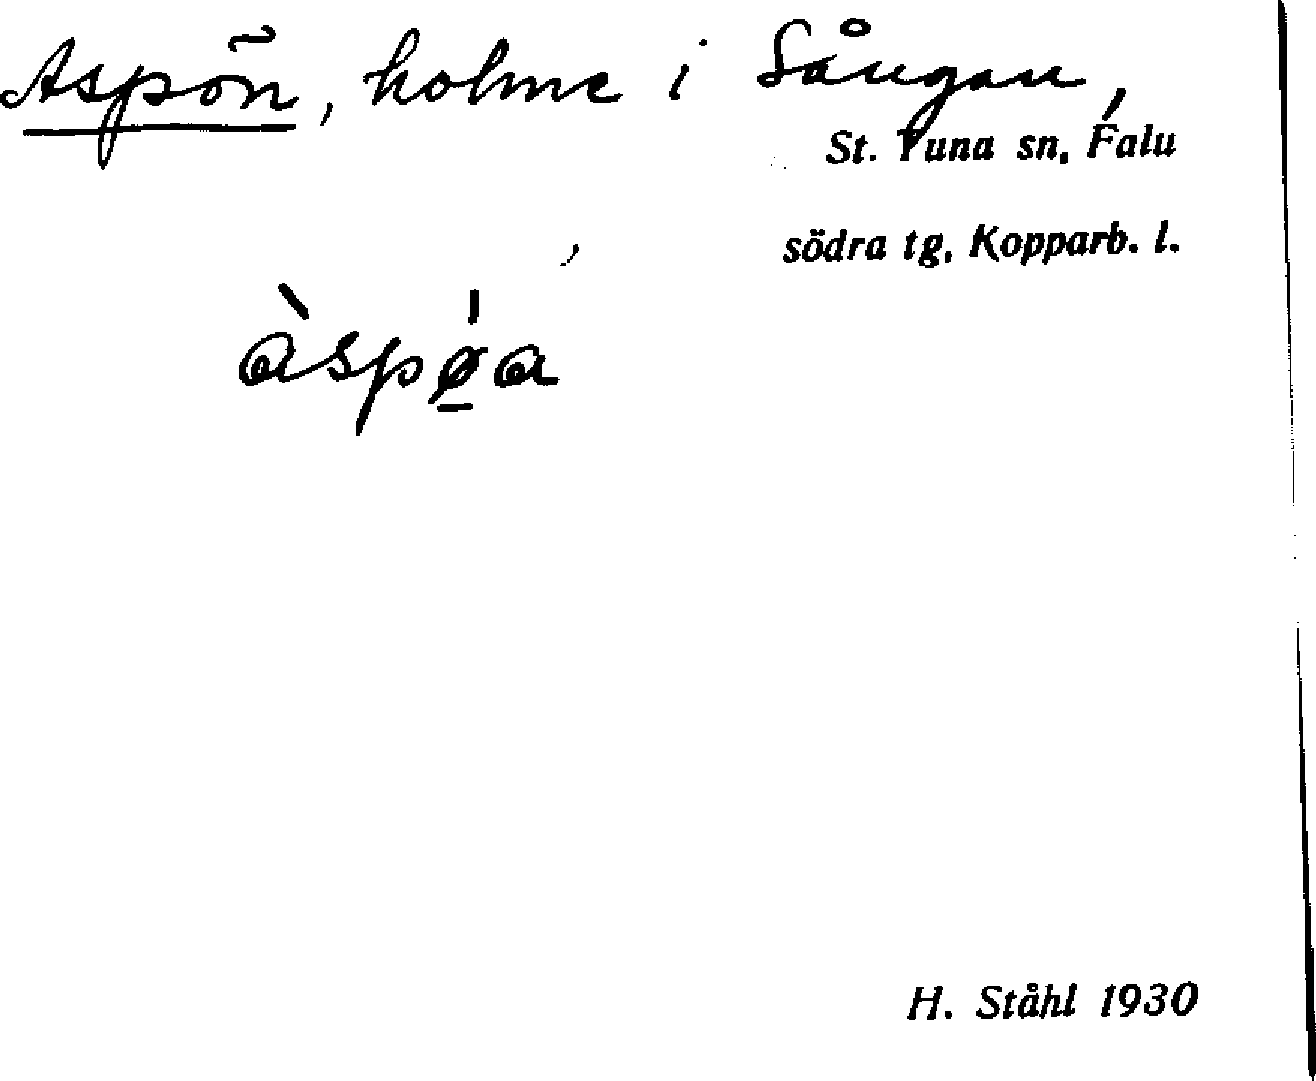 Aspön, holme i Sångan,
St. Tuna sn, Falu
södra tg, Kopparb. l.
àspø̱̍a
H. Ståhl 1930